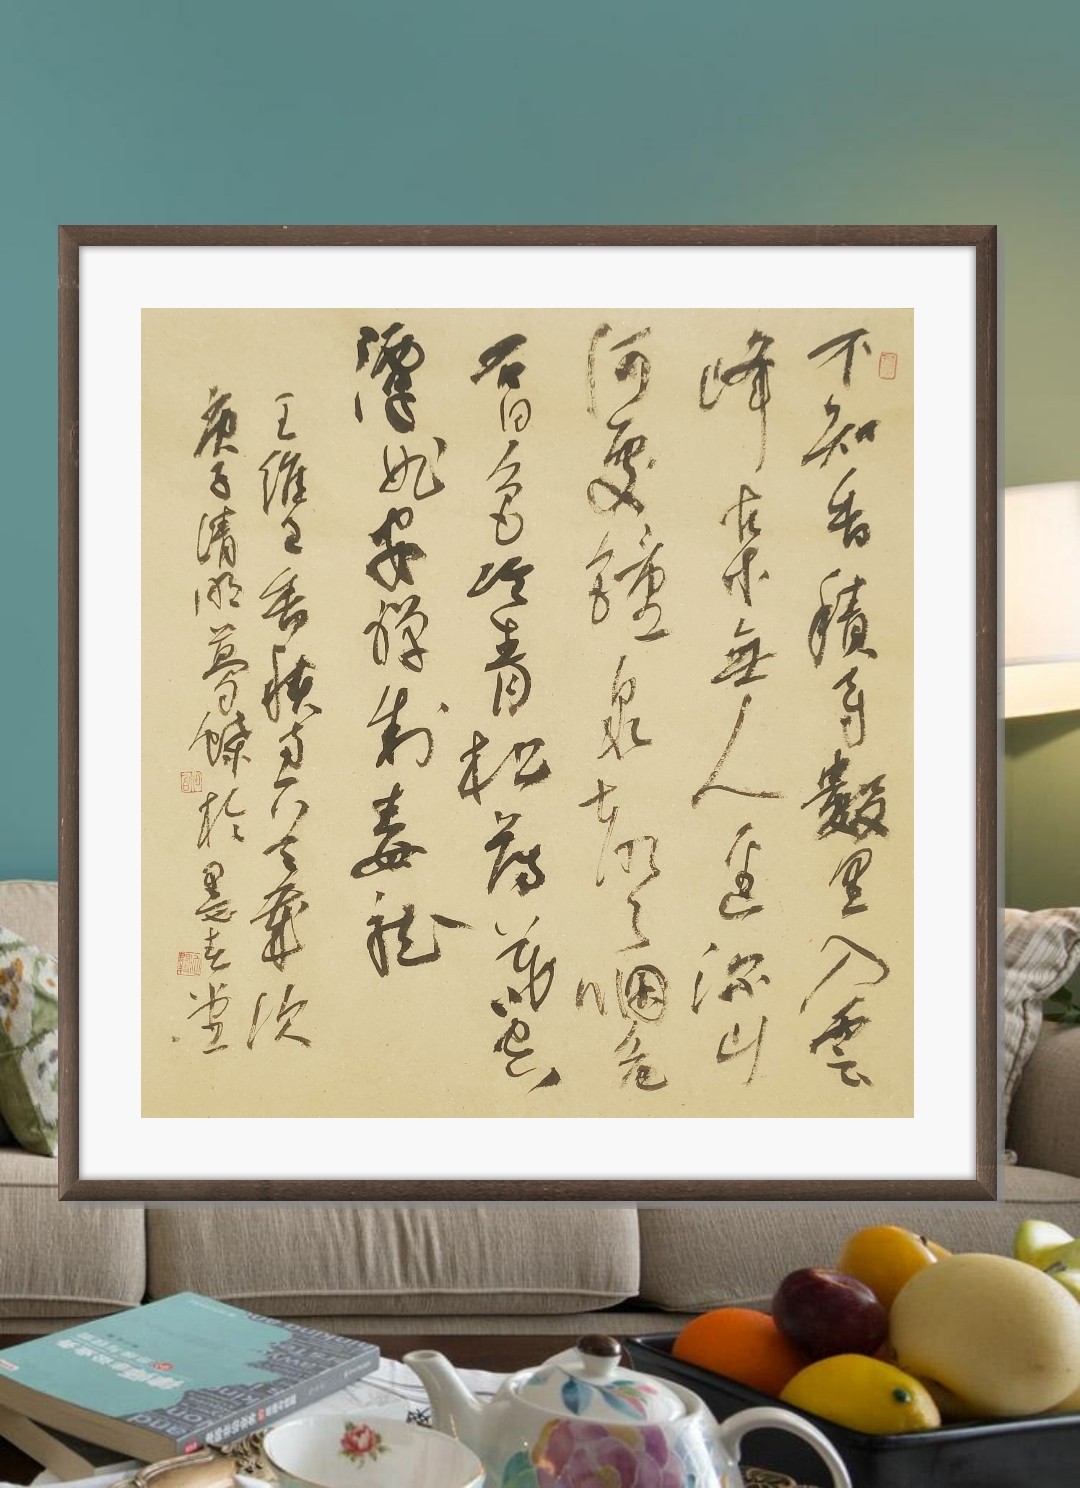 不知香積寺數里入雲
峰古木無人逕深山
何處鐘泉聲咽危
石日色冷青松薄暮空
潭曲安禪制毒龍
王維香積寺
庚子清明於墨堂